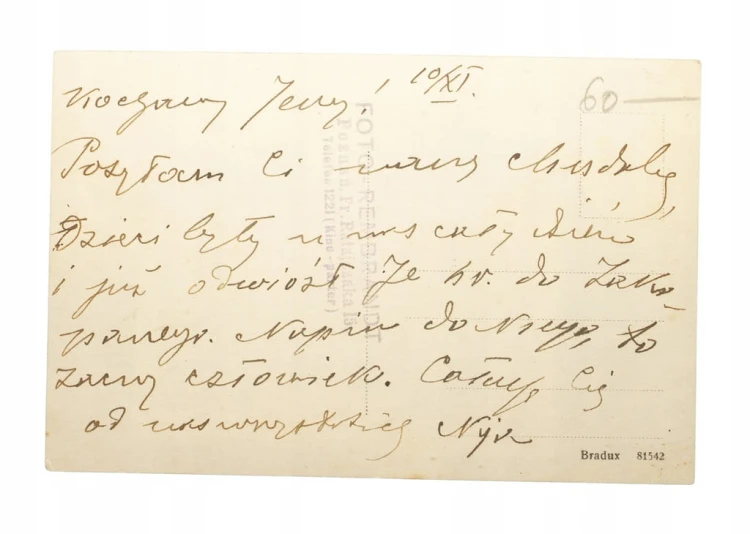 Kochany Jerzy! 10/XI.
60
Posyłam Ci
Dzieci były u nas cały dzień
i już odwiózł je hr. do Zako-
panego. Napisz do Niego, to
zacny człowiek. Całuję Cię
od nas wszystkich
FOTO-REMBRANDT
Poznań, Fr. Ratajczaka
Telefon 1221 (Kino-)
Bradux 81542